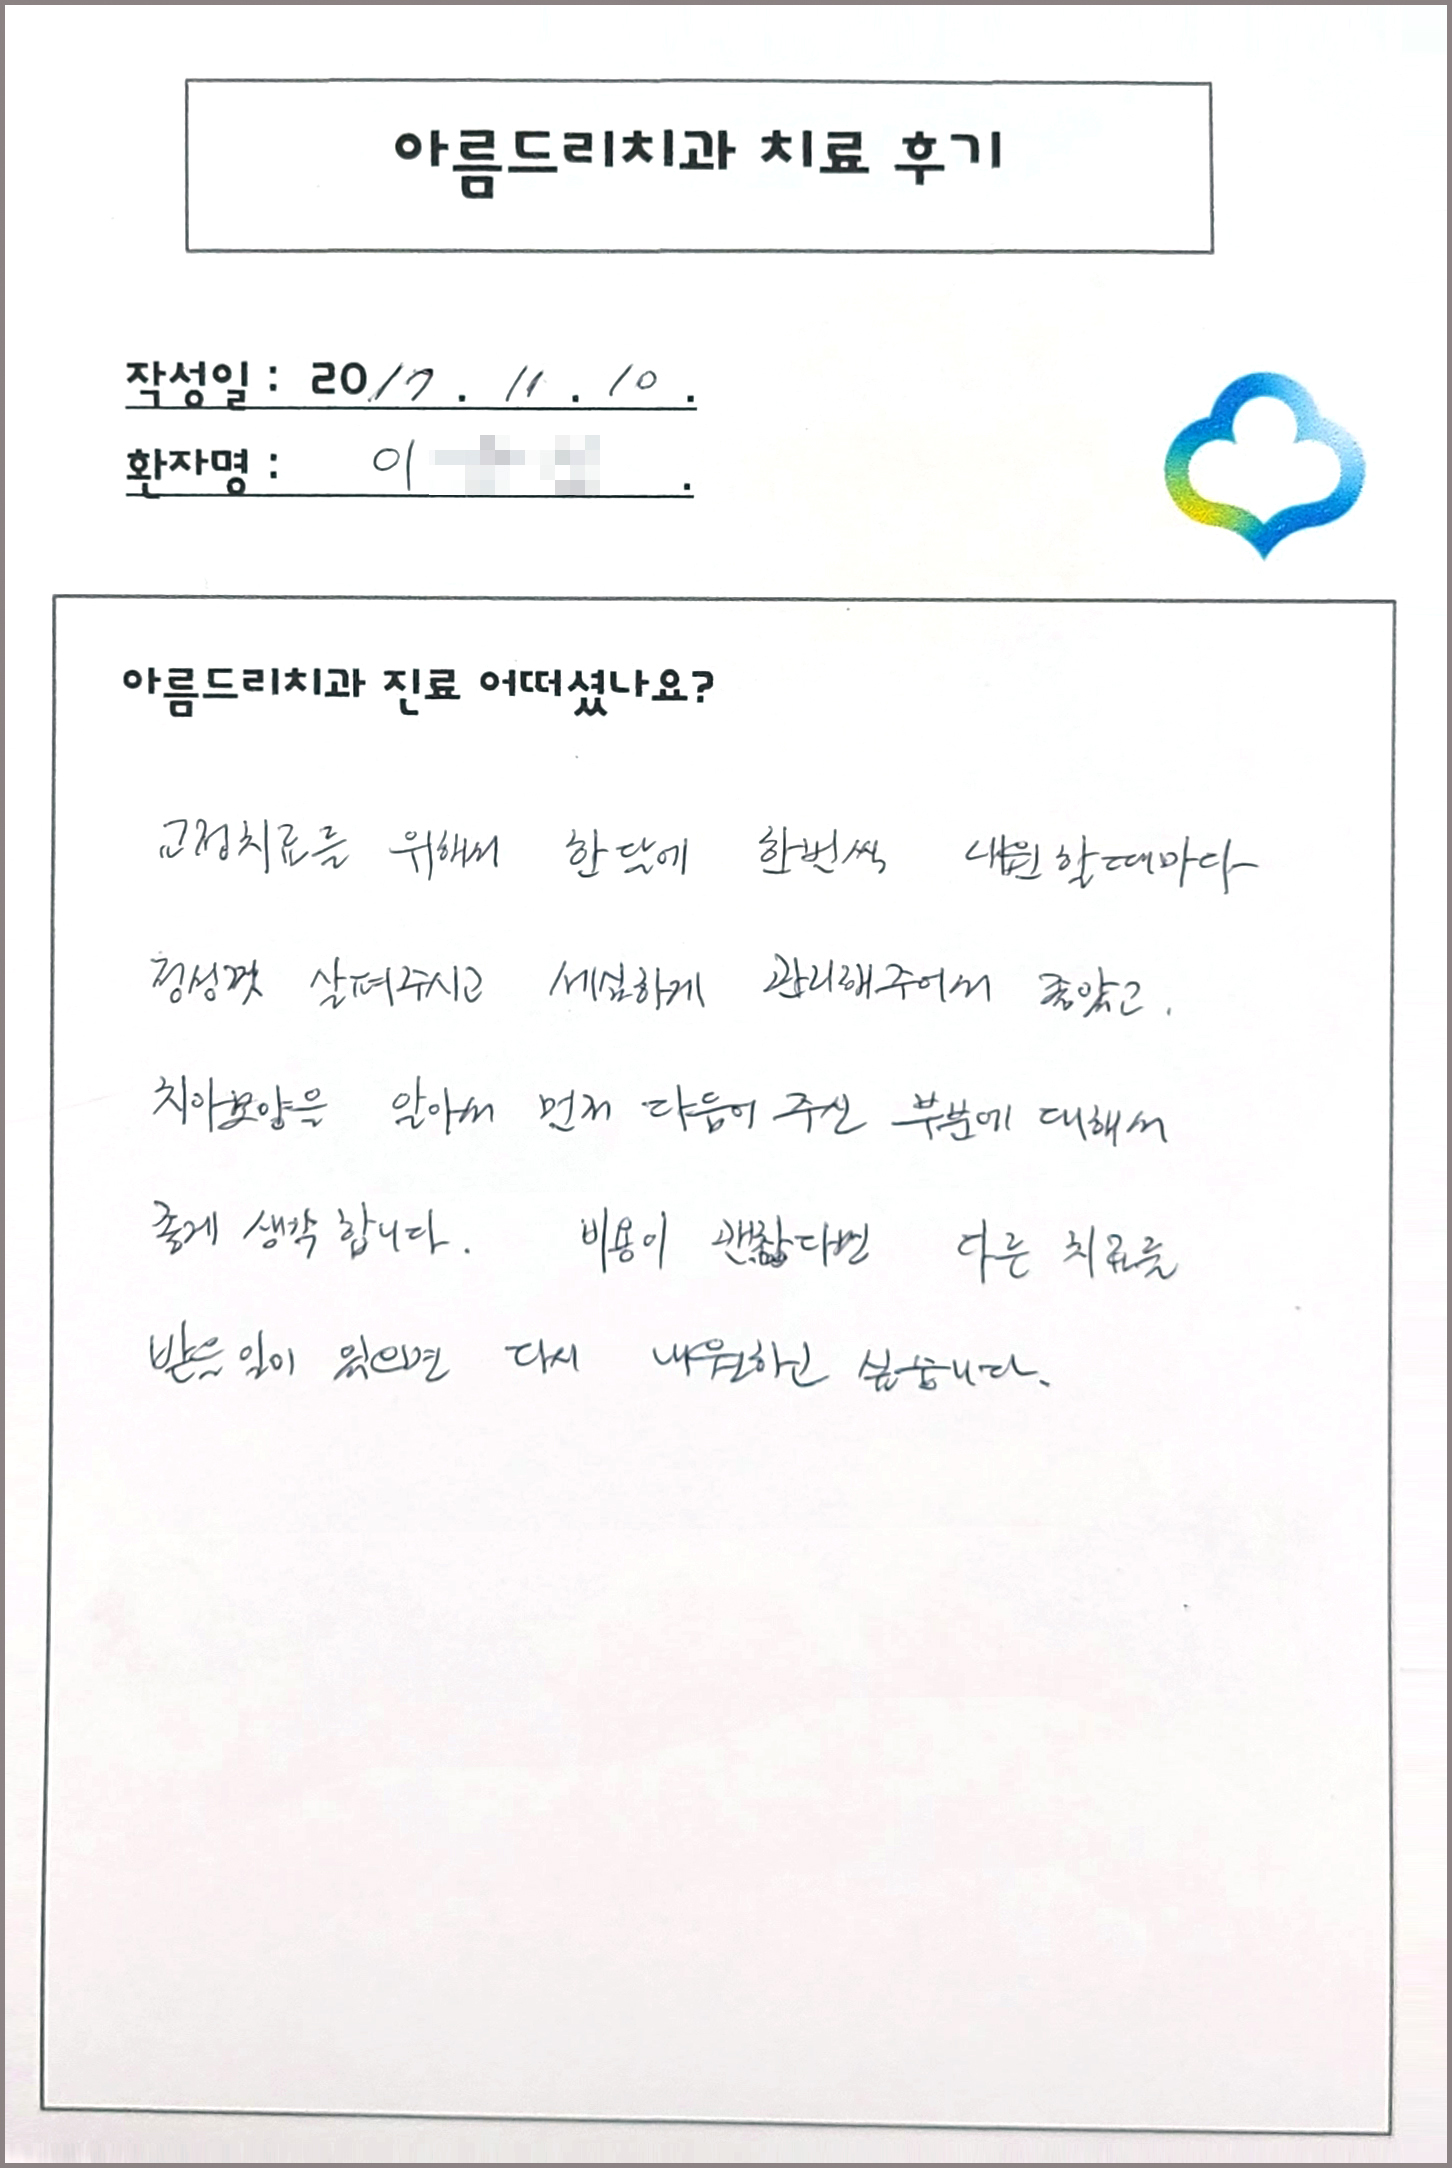 아름드리치과 치료 후기
작성일 : 2017 . 11 . 10 .
환자명 : 이 .
아름드리치과 진료 어떠셨나요?
교정치료를 위해서 한달에 한번씩 내원할때마다
정성껏 살펴주시고 세심하게 관리해주어서 좋았고.
치아모양을 알아서 먼저 다듬어 주신 부분에 대해서
좋게 생각합니다. 비용이 괜찮다면 다른 치료를
받을일이 있으면 다시 내원하고 싶습니다.